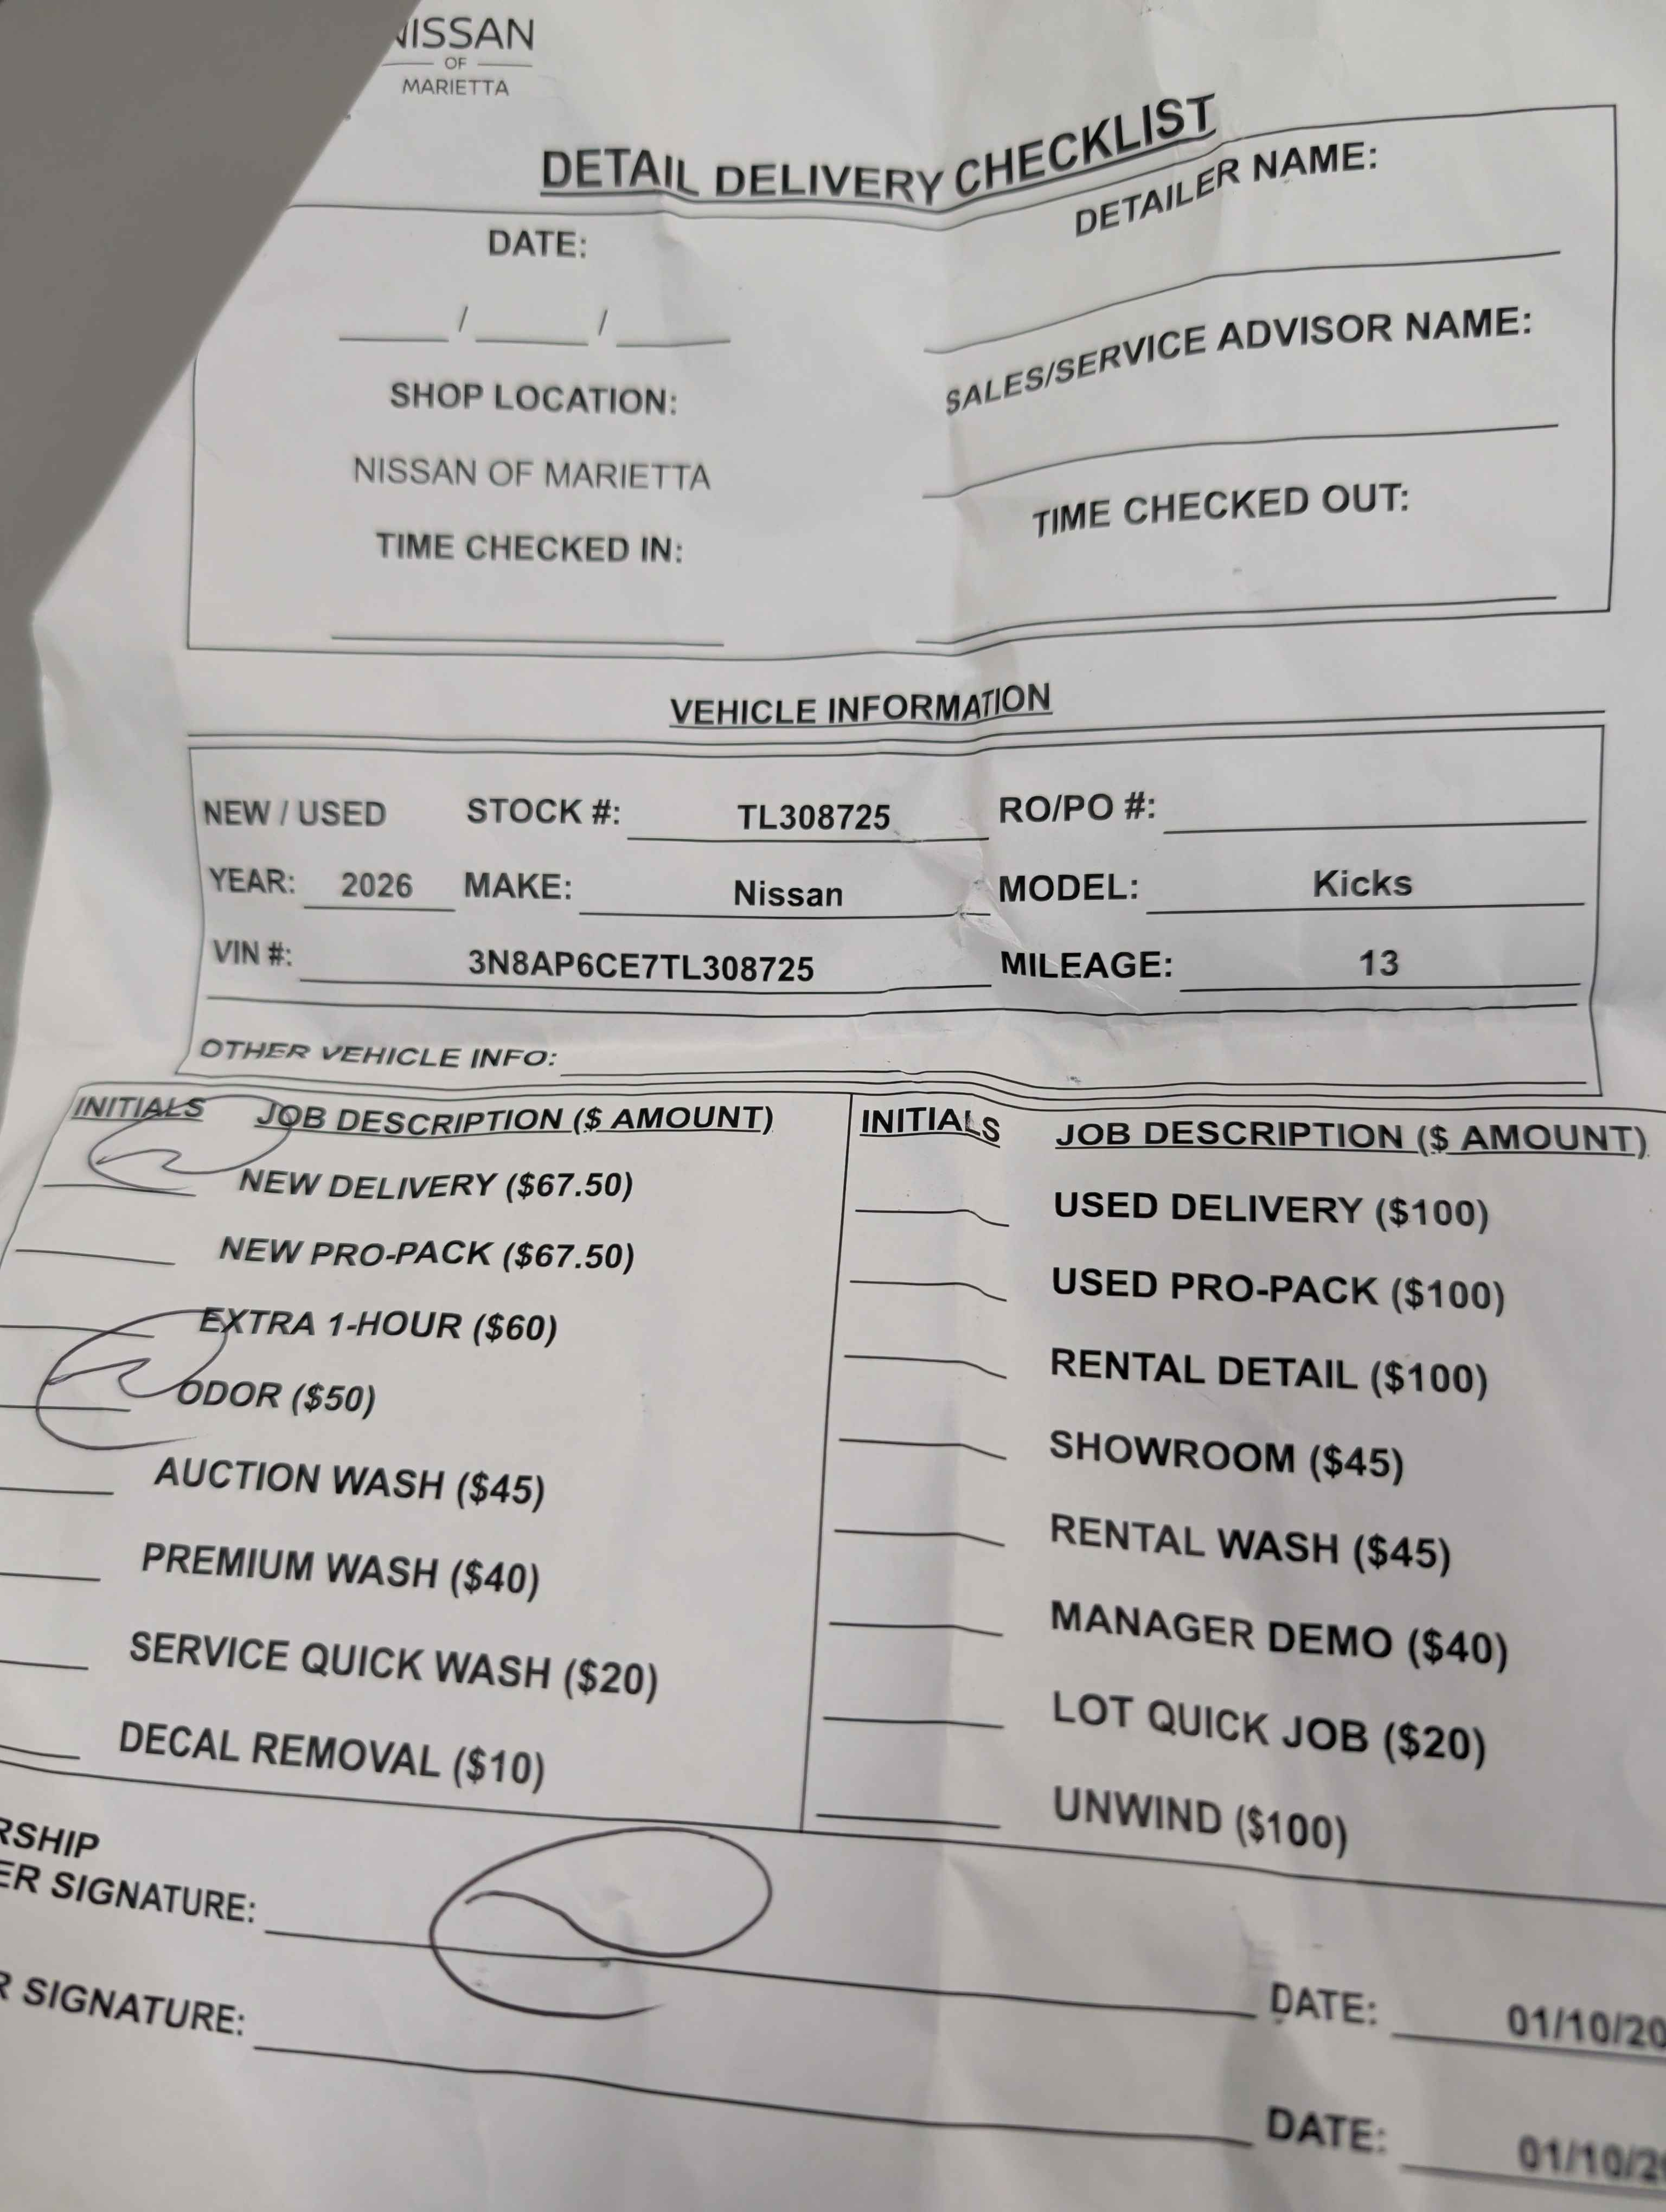 NISSAN
OF
MARIETTA
DETAIL DELIVERY CHECKLIST
DATE:
DETAILER NAME:
/ /
SHOP LOCATION:
SALES/SERVICE ADVISOR NAME:
NISSAN OF MARIETTA
TIME CHECKED IN:
TIME CHECKED OUT:
VEHICLE INFORMATION
NEW / USED STOCK #: TL308725 RO/PO #:
YEAR: 2026 MAKE: Nissan MODEL: Kicks
VIN #: 3N8AP6CE7TL308725 MILEAGE: 13
OTHER VEHICLE INFO:
INITIALS JOB DESCRIPTION ($ AMOUNT)
NEW DELIVERY ($67.50)
NEW PRO-PACK ($67.50)
EXTRA 1-HOUR ($60)
ODOR ($50)
AUCTION WASH ($45)
PREMIUM WASH ($40)
SERVICE QUICK WASH ($20)
DECAL REMOVAL ($10)
INITIALS JOB DESCRIPTION ($ AMOUNT)
USED DELIVERY ($100)
USED PRO-PACK ($100)
RENTAL DETAIL ($100)
SHOWROOM ($45)
RENTAL WASH ($45)
MANAGER DEMO ($40)
LOT QUICK JOB ($20)
UNWIND ($100)
RSHIP
ER SIGNATURE: DATE: 01/10/20
R SIGNATURE: DATE: 01/10/20